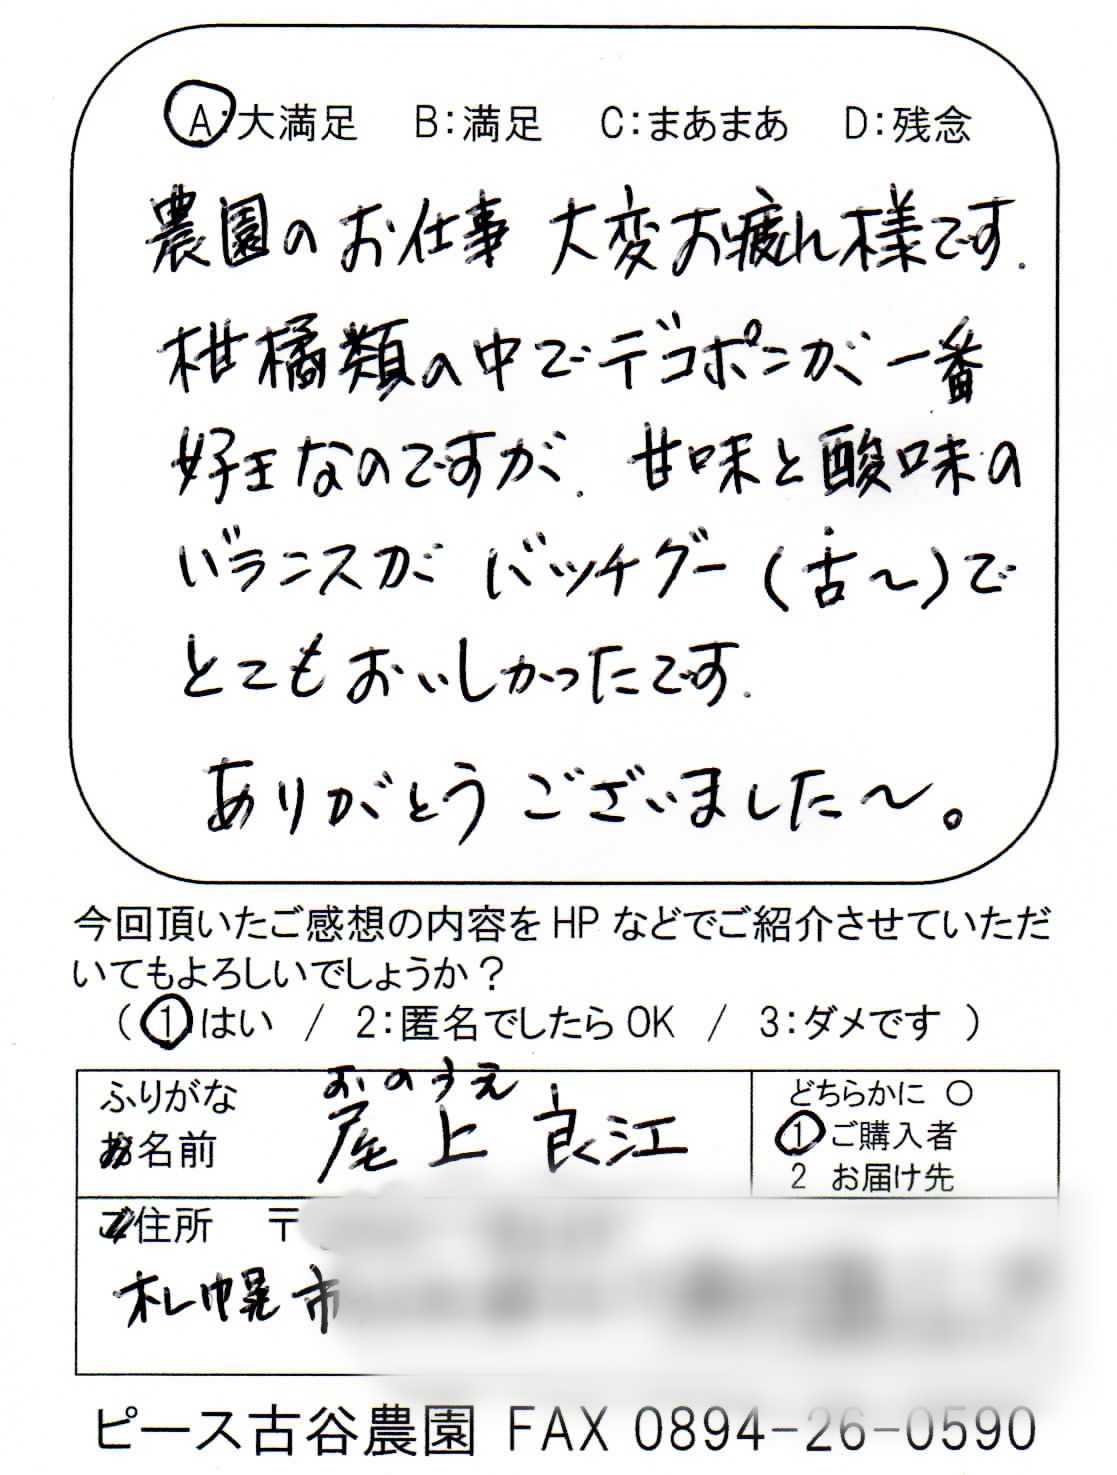 A:大満足 B:満足 C:まあまあ D:残念
農園のお仕事 大変お疲れ様です.
柑橘類の中でデコポンが一番
好きなのですが. 甘味と酸味の
バランスが バッチグー(古〜)で
とてもおいしかったです.
ありがとうございました〜。
今回頂いたご感想の内容をHPなどでご紹介させていただ
いてもよろしいでしょうか？
( 1 はい / 2:匿名でしたらOK / 3:ダメです )
ふりがな おのうえ
お名前 尾上 良江
どちらかに ○
1 ご購入者
2 お届け先
ご住所 〒
札幌市
ピース古谷農園 FAX 0894-26-0590